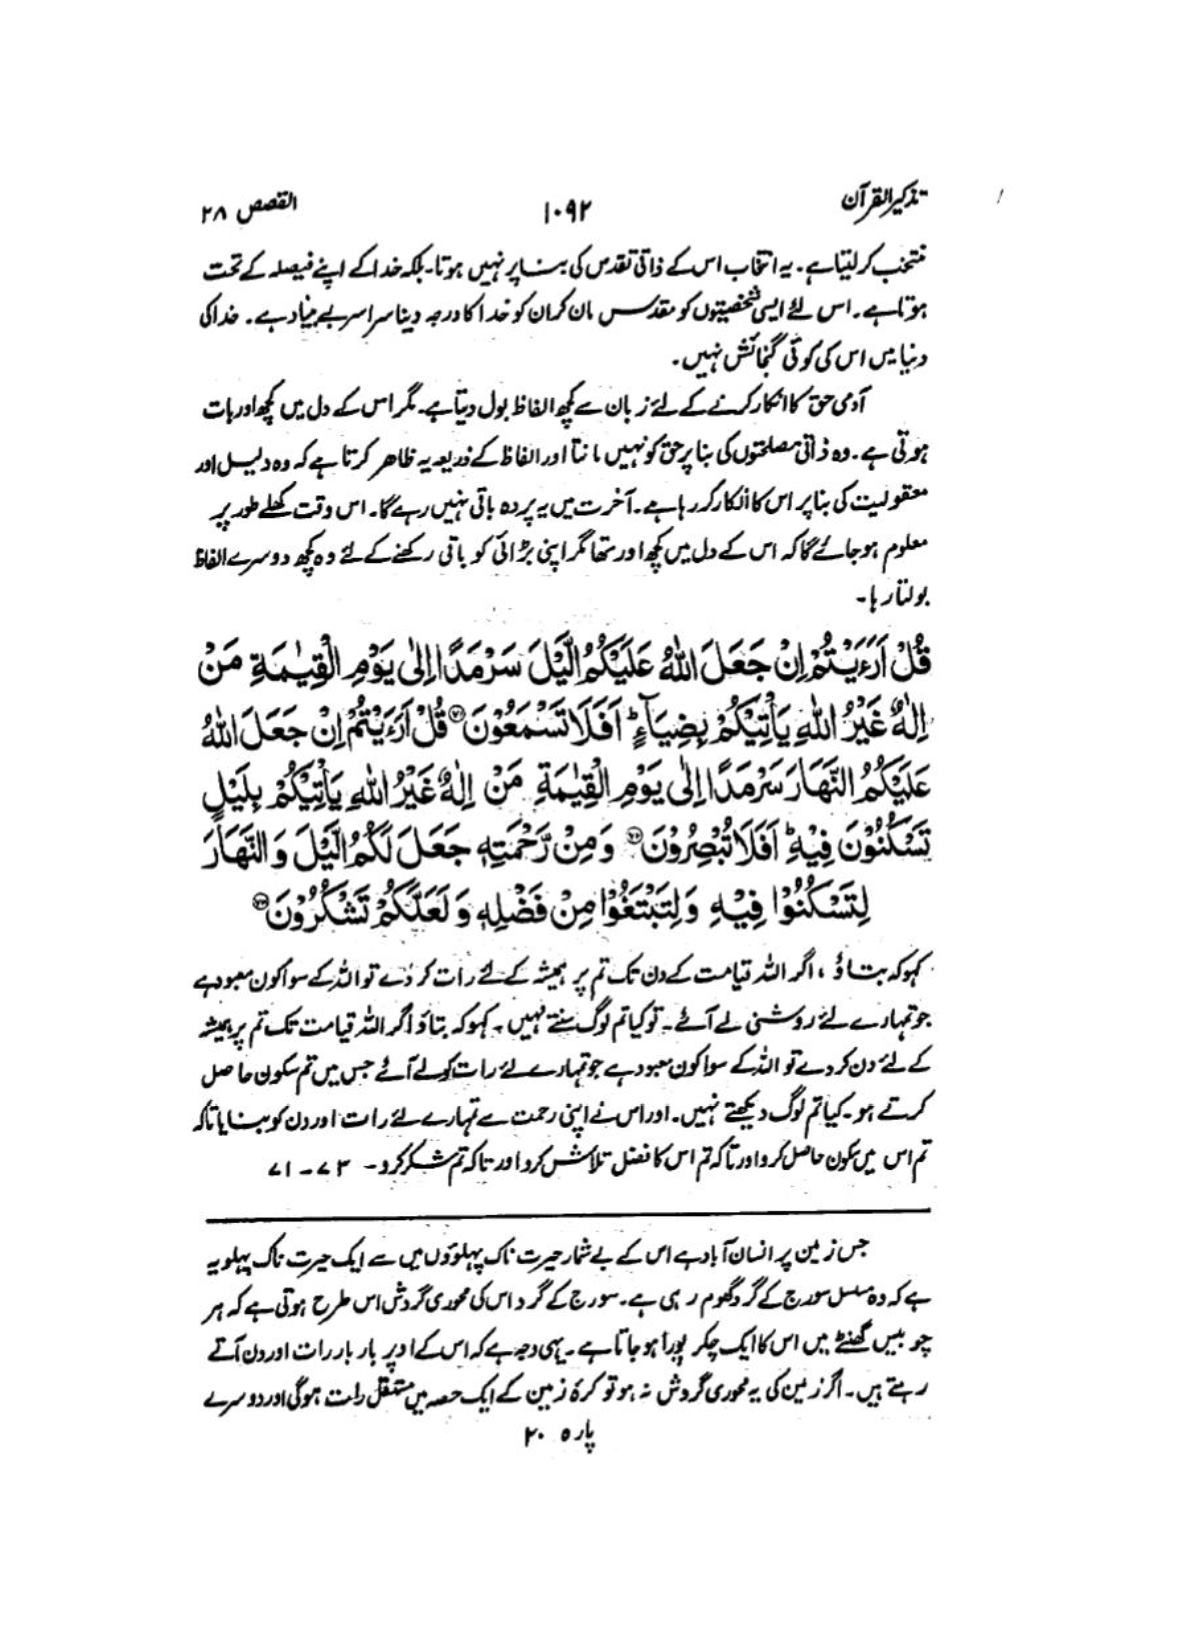 تذکیر القرآن ۱۰۹۲ القصص ۲۸
منتخب کرلیتا ہے۔ یہ انتخاب اس کے ذاتی تقدس کی بنا پر نہیں ہوتا۔ بلکہ خدا کے اپنے فیصلہ کے تحت
ہوتا ہے۔ اس لئے ایسی شخصیتوں کو مقدس مان کر ان کو خدا کا درجہ دینا سراسر بے بنیاد ہے۔ خدا کی
دنیا میں اس کی کوئی گنجائش نہیں۔
آدمی حق کا انکار کرنے کے لئے زبان سے کچھ الفاظ بول دیتا ہے۔ مگر اس کے دل میں کچھ اور بات
ہوتی ہے۔ وہ ذاتی مصلحتوں کی بنا پر حق کو نہیں مانتا اور الفاظ کے ذریعہ یہ ظاہر کرتا ہے کہ وہ دلیل اور
معقولیت کی بنا پر اس کا انکار کر رہا ہے۔ آخرت میں یہ پردہ باقی نہیں رہے گا۔ اس وقت کھلے طور پر
معلوم ہو جائے گا کہ اس کے دل میں کچھ اور تھا مگر اپنی بڑائی کو باقی رکھنے کے لئے وہ کچھ دوسرے الفاظ
بولتا رہا۔
قُلْ اَرَءَيْتُمْ اِنْ جَعَلَ اللّٰهُ عَلَيْكُمُ الَّيْلَ سَرْمَدًا اِلٰى يَوْمِ الْقِيٰمَةِ مَنْ
اِلٰهٌ غَيْرُ اللّٰهِ يَاْتِيْكُمْ بِضِيَآءٍ ؕ اَفَلَا تَسْمَعُوْنَ ﴿۷۱﴾ قُلْ اَرَءَيْتُمْ اِنْ جَعَلَ اللّٰهُ
عَلَيْكُمُ النَّهَارَ سَرْمَدًا اِلٰى يَوْمِ الْقِيٰمَةِ مَنْ اِلٰهٌ غَيْرُ اللّٰهِ يَاْتِيْكُمْ بِلَيْلٍ
تَسْكُنُوْنَ فِيْهِ ؕ اَفَلَا تُبْصِرُوْنَ ﴿۷۲﴾ وَمِنْ رَّحْمَتِهٖ جَعَلَ لَكُمُ الَّيْلَ وَالنَّهَارَ
لِتَسْكُنُوْا فِيْهِ وَلِتَبْتَغُوْا مِنْ فَضْلِهٖ وَلَعَلَّكُمْ تَشْكُرُوْنَ ﴿۷۳﴾
کہو کہ بتاؤ، اگر اللہ قیامت کے دن تک تم پر ہمیشہ کے لئے رات کر دے تو اللہ کے سوا کون معبود ہے
جو تمہارے لئے روشنی لے آئے۔ تو کیا تم لوگ سنتے نہیں۔ کہو کہ بتاؤ اگر اللہ قیامت تک تم پر ہمیشہ
کے لئے دن کر دے تو اللہ کے سوا کون معبود ہے جو تمہارے لئے رات کو لے آئے جس میں تم سکون حاصل
کرتے ہو۔ کیا تم لوگ دیکھتے نہیں۔ اور اس نے اپنی رحمت سے تمہارے لئے رات اور دن کو بنایا تاکہ
تم اس میں سکون حاصل کرو اور تاکہ تم اس کا فضل تلاش کرو اور تاکہ تم شکر کرو۔ ۷۳-۷۱
جس زمین پر انسان آباد ہے اس کے بے شمار حیرت ناک پہلوؤں میں سے ایک حیرت ناک پہلو یہ
ہے کہ وہ مسلسل سورج کے گرد گھوم رہی ہے۔ سورج کے گرد اس کی محوری گردش اس طرح ہوتی ہے کہ ہر
چوبیس گھنٹے میں اس کا ایک چکر پورا ہو جاتا ہے۔ یہی وجہ ہے کہ اس کے اوپر بار بار رات اور دن آتے
رہتے ہیں۔ اگر زمین کی یہ محوری گردش نہ ہو تو کرۂ زمین کے ایک حصہ میں مستقل رات ہوگی اور دوسرے
پارہ ۲۰